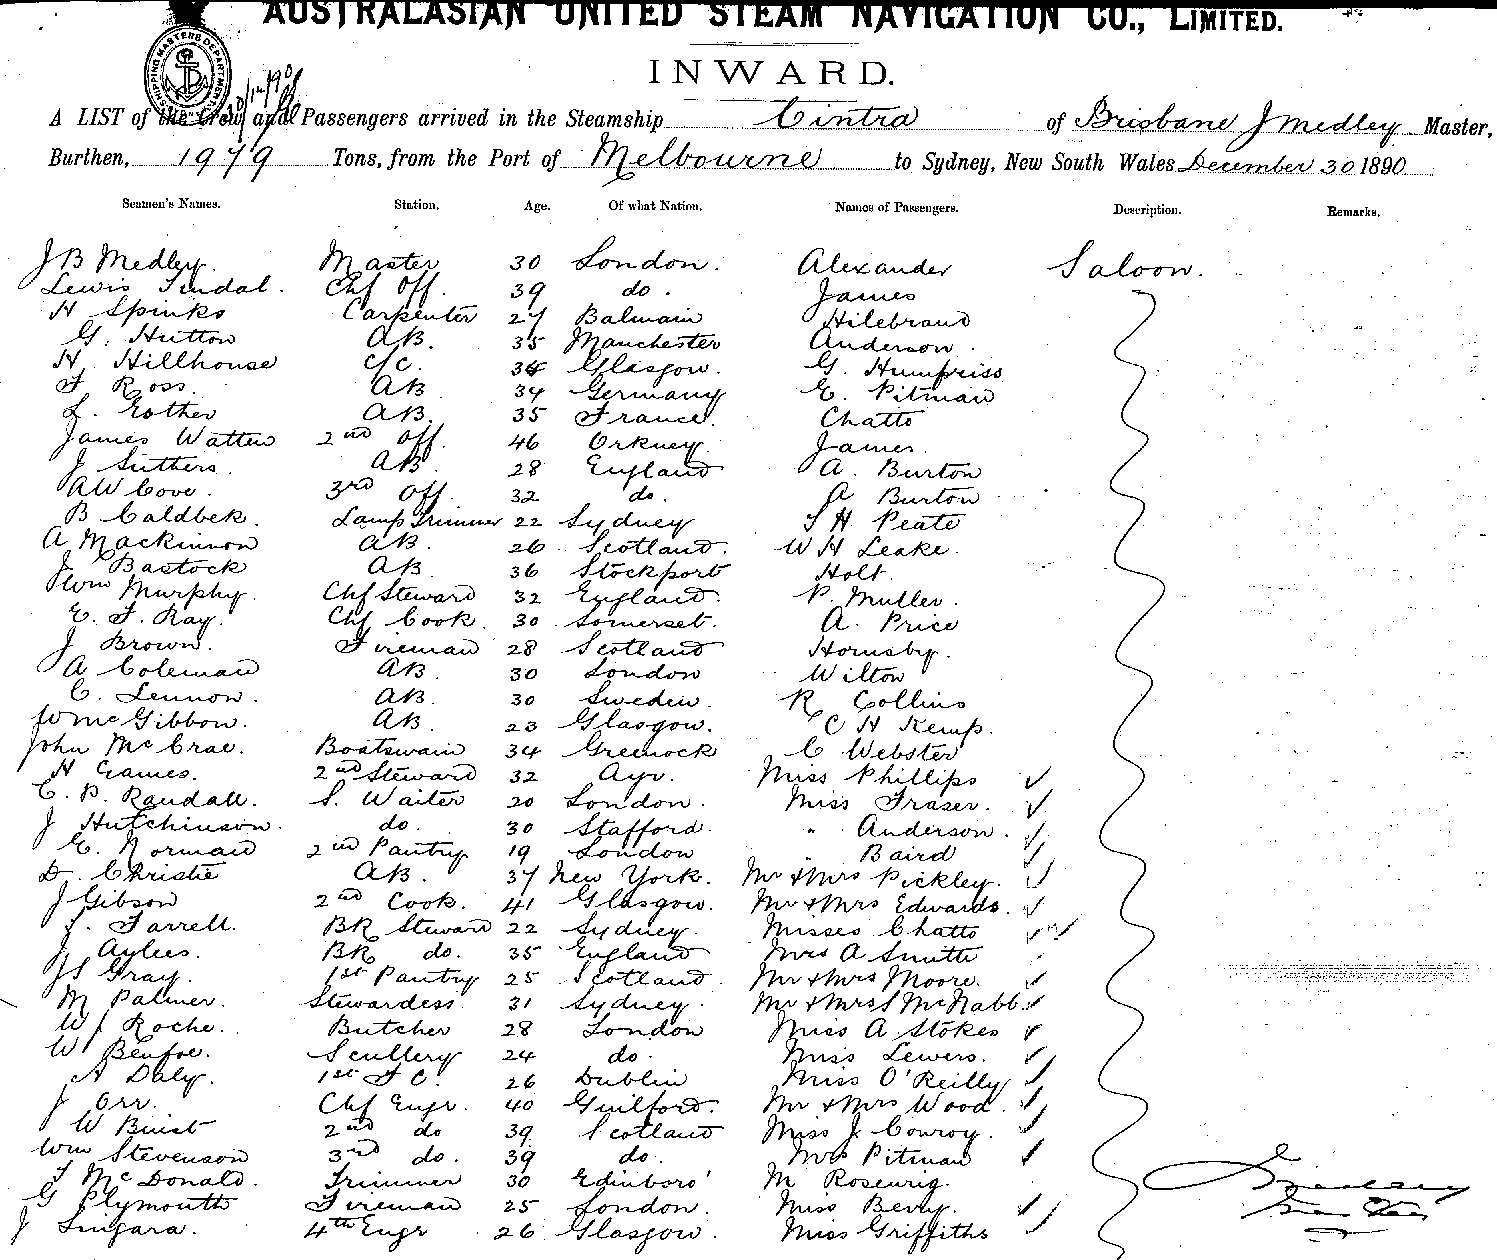 AUSTRALASIAN UNITED STEAM NAVIGATION CO., LIMITED.
INWARD.
A LIST of the Crew and Passengers arrived in the Steamship Cintra of Brisbane J Medley Master,
Burthen, 1979 Tons, from the Port of Melbourne to Sydney, New South Wales December 30 1890
Seamen's Names. Station. Age. Of what Nation. Names of Passengers. Description. Remarks.
J B Medley. Master 30 London. Alexander Saloon.
Lewis Tindal. Chf Off. 39 do. James
H Spinks Carpenter 27 Balmain Hilebrand
G. Hutton AB. 35 Manchester Anderson.
H. Hillhouse C/C. 34 Glasgow. G. Humfriss
F Ross. AB 34 Germany E. Pitman
L. Esther AB. 35 France. Chatto
James Watten 2nd Off. 46 Orkney. James.
J Suthers. AB 28 England A. Burton
AW Cove. 3rd Off. 32 do. A Burton
B Caldbek. Lamp Trimmer 22 Sydney S H Peate
A Mackinnon AB. 26 Scotland. W H Leake.
J Bastock AB. 36 Stockport Holt.
Wm Murphy. Chf Steward 32 England. P. Muller.
E. F. Ray. Chf Cook. 30 Somerset. A. Price
J Brown. Fireman 28 Scotland Hornsby.
A Coleman AB. 30 London Wilton
C. Lennon. AB. 30 Sweden. R Collins
W McGibbon. AB. 23 Glasgow. C H Kemp.
John McCrae. Boatswain 34 Greenock C Webster
H Eames. 2nd Steward 32 Ayr. Miss Phillips
C. P. Randall. S. Waiter 20 London. Miss Fraser.
J Hutchinson. do. 30 Stafford. " Anderson.
E. Norman 2nd Pantry 19 London " Baird
D. Christie AB. 37 New York. Mr & Mrs Pickley.
J Gibson 2nd Cook. 41 Glasgow. Mr & Mrs Edwards.
J. Farrell. BR Steward 22 Sydney. Misses Chatto
J Aylees. BR do. 35 England Mrs A Smith
JS Gray. 1st Pantry 25 Scotland. Mr & Mrs Moore.
M Palmer. Stewardess 31 Sydney. Mr & Mrs McNabb.
W J Roche. Butcher 28 London Miss A Stokes
W Benfoe. Scullery 24 do. Miss Lewers.
A Daly. 1st S C. 26 Dublin Miss O'Reilly
J Orr. Chf Engr. 40 Guilford. Mr & Mrs Wood.
W Buist 2nd do 39 Scotland Miss J. Conroy.
Wm Stevenson 3rd do. 39 do. Mrs Pitman
F McDonald. Trimmer 30 Edinboro' M Rosenrig.
G Plymouth Fireman 25 London. Miss Berry.
J Singara. 4th Engr 26 Glasgow. Miss Griffiths